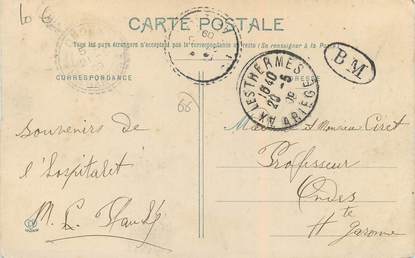 CARTE POSTALE
Tous les pays étrangers n'acceptent pas la correspondance au recto (Se renseigner à la Poste)
CORRESPONDANCE
ADRESSE
BM
AX LES THERMES
16 40
20 -5
ARIÈGE
66
souvenirs de
l'hospitalet
et Monsieur Ciret
Professeur
Ondes
Hte
Garonne